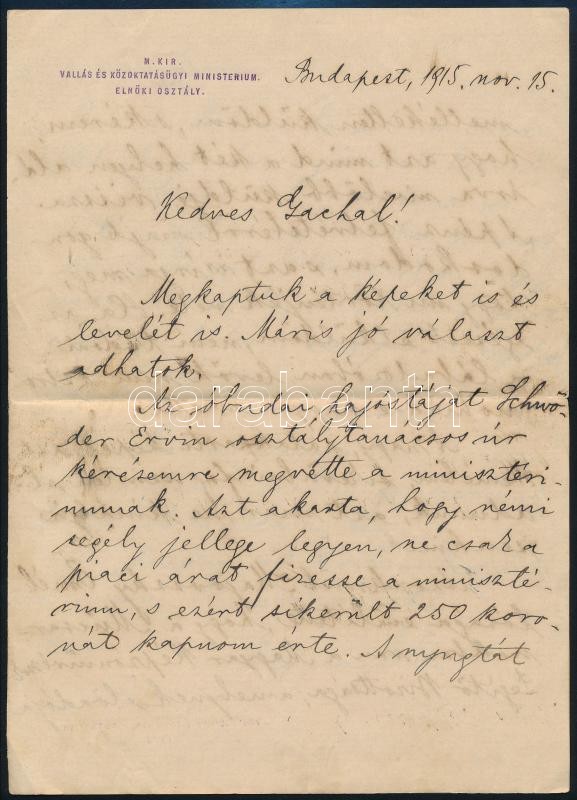 M. KIR.
VALLÁS ÉS KÖZOKTATÁSÜGYI MINISTERIUM.
ELNÖKI OSZTÁLY.
Budapest, 1915. nov. 15.
Kedves Gachal!
Megkaptuk a képeket is és
levelét is. Máris jó választ
adhatok.
Az óbudai hajóstáját Schwö-
der Ervin osztálytanácsos úr
kérésemre megvette a minisztéri-
umnak. Azt akarta, hogy némi
segély jellege legyen, ne csak a
piaci árat fizesse a miniszté-
rium, s ezért sikerült 250 koro-
nát kapnom érte. A nyugtát
darabanth.com